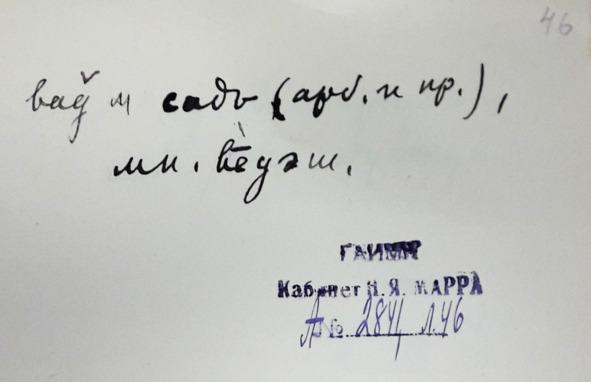 46
м садъ (арб. и пр.),
мн.
ГАИМК
Кабинет Н.Я. МАРРА
А № 2841 л.46